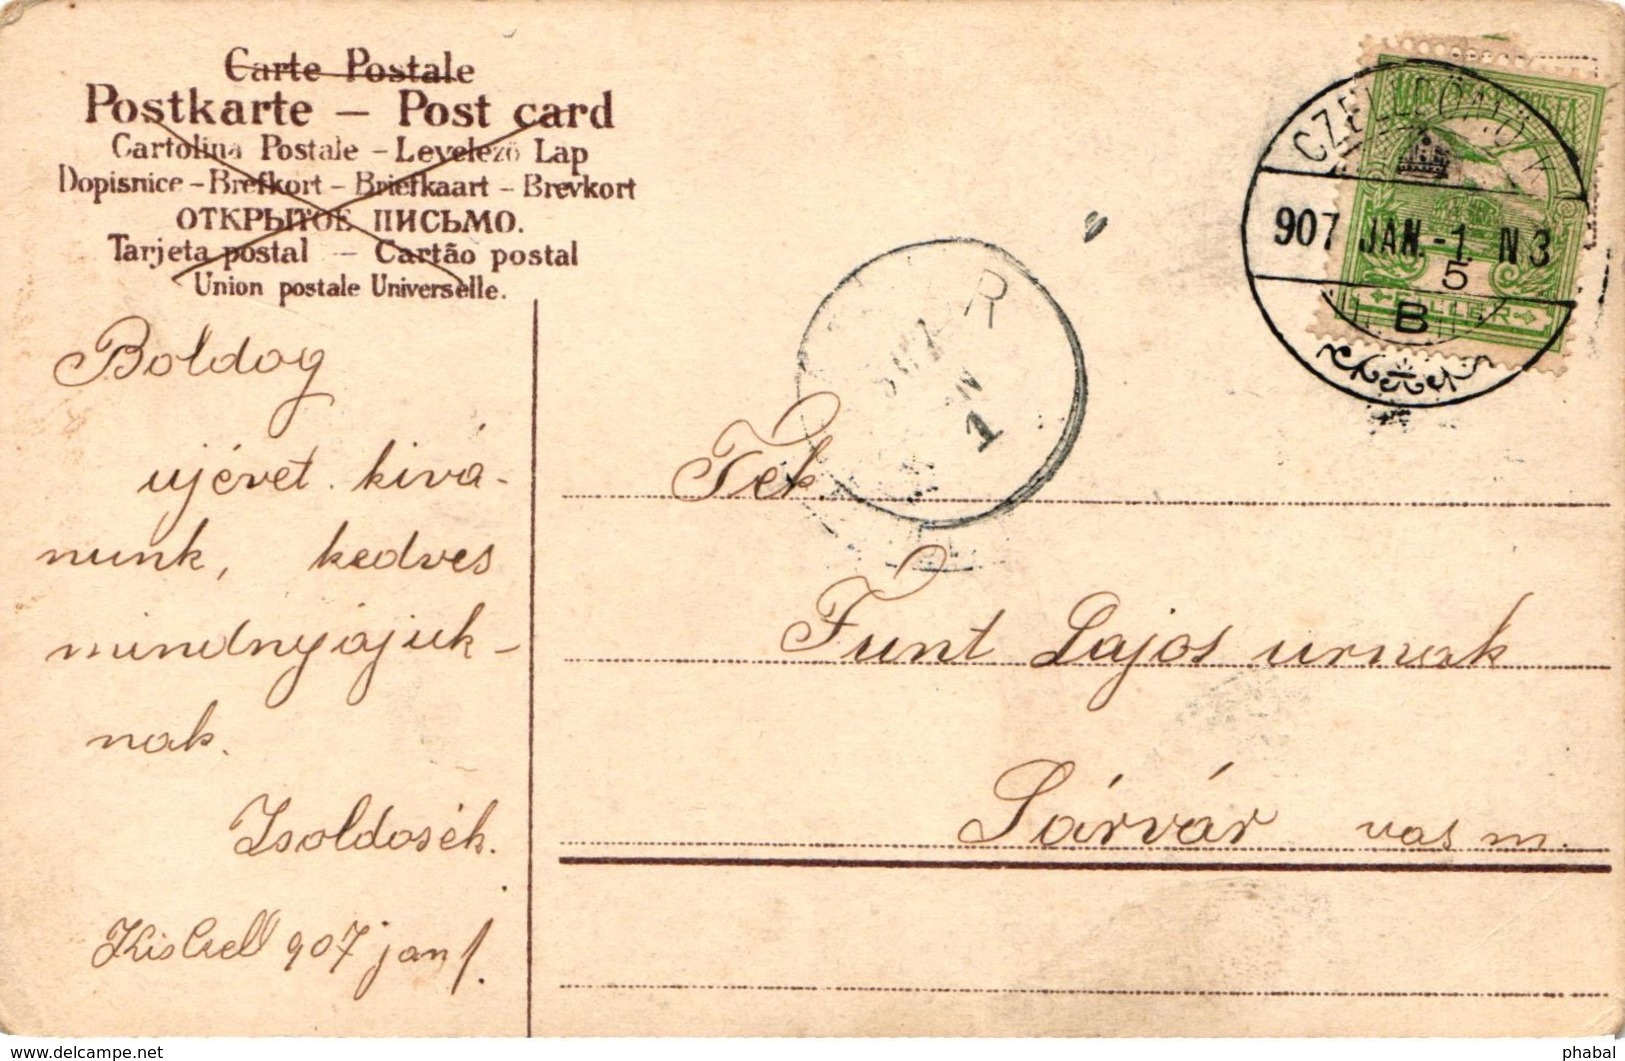 Carte Postale
Postkarte – Post card
Cartolina Postale – Levelező Lap
Dopisnice – Brefkort – Briefkaart – Brevkort
ОТКРЫТОЕ ПИСЬМО.
Tarjeta postal – Cartão postal
Union postale Universelle.
Boldog
ujévet kivá-
nunk, kedves
mindnyájuk-
nak.
Isoldosék.
Kis Czell 907 jan 1.
CZELLDÖMÖLK
907 JAN. -1. N3
5
B
FILLÉR
Tek.
Funt Lajos urnak
Sárvár vas m.
https://www.delcampe.net
phabal